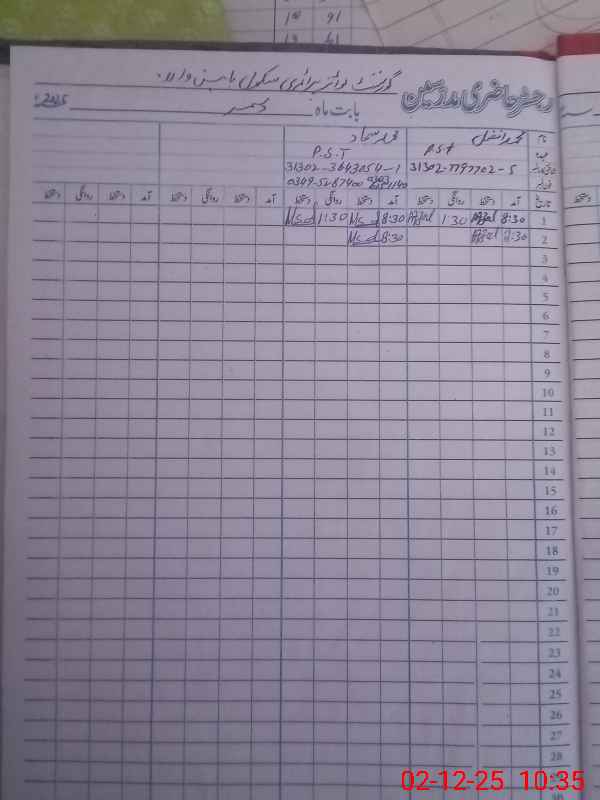 91 10
گورنمنٹ بوائز پرائمری سکول
رجسٹر حاضری مدرسین
بابت ماہ دسمبر 2025ء
نام محمد افضل محمد سجاد
عہدہ P.S.T P.S.T
31302-7797702-5 31302-3643054-1
تاریخ آمد دستخط روانگی دستخط آمد دستخط روانگی دستخط آمد دستخط روانگی دستخط آمد دستخط روانگی دستخط
1 8:30 Afzal 1:30 Afzal 8:30 M.s.d 1:30 M.s.d
2 8:30 Afzal 8:30 M.s.d
3
4
5
6
7
8
9
10
11
12
13
14
15
16
17
18
19
20
21
22
23
24
25
26
27
28
02-12-25 10:35